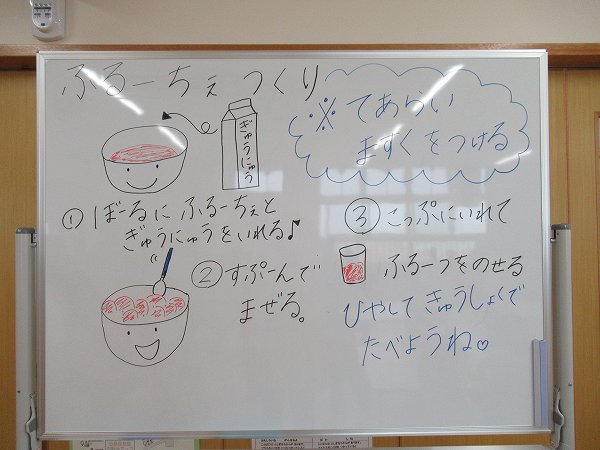 ふるーちぇ つくり
※てあらい
ますくをつける
ぎゅうにゅう
①ぼーるに ふるーちぇと
ぎゅうにゅうをいれる♪
②すぷーんで
まぜる。
③こっぷにいれて
ふるーつをのせる
ひやして きゅうしょくで
たべようね♡